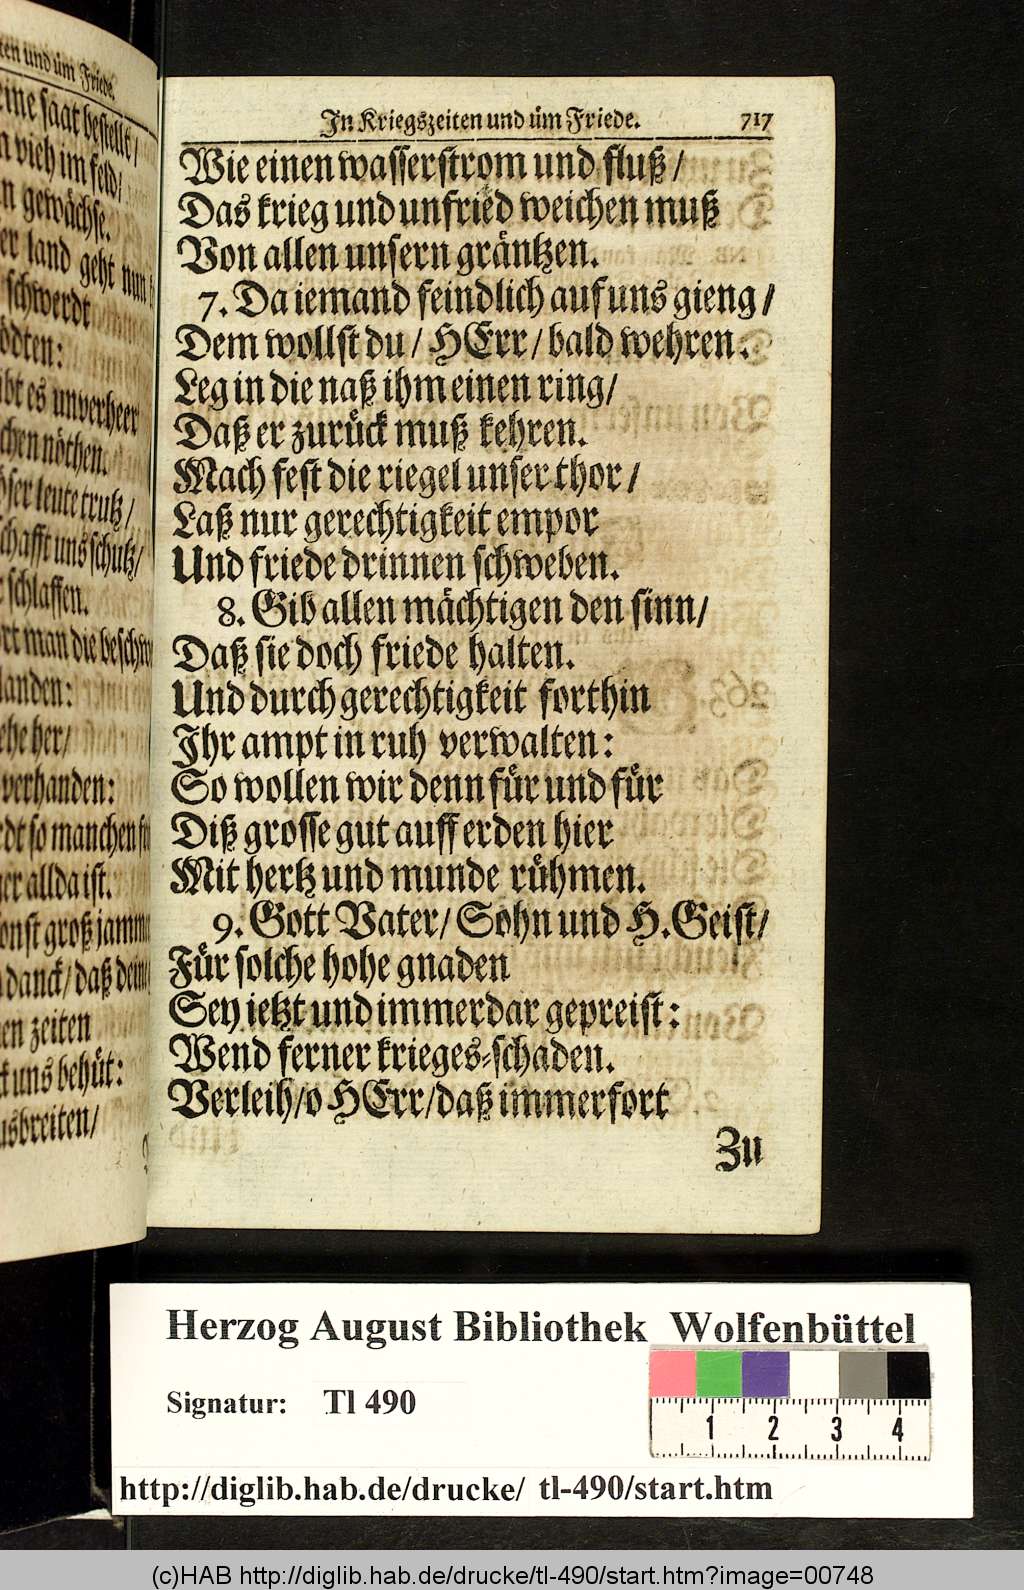 ten und üm Friede.
eine saat bestellt/
vieh im feld/
gewächse.
land geht nun
schwerdt
ödten:
bt es unverheer
chen nöthen.
leute trutz/
schafft uns schutz/
schlaffen.
man die beschw
landen:
her/
verhanden:
so manchen
allda ist.
onst groß jamm
danck/ daß dein
en zeiten
uns behüt:
usbreiten/
In Kriegszeiten und üm Friede. 717
Wie einen wasserstrom und fluß/
Das krieg und unfried weichen muß
Von allen unsern gräntzen.
7. Da iemand feindlich auf uns gieng/
Dem wollst du/ HErr/ bald wehren.
Leg in die naß ihm einen ring/
Daß er zurück muß kehren.
Mach fest die riegel unser thor/
Laß nur gerechtigkeit empor
Und friede drinnen schweben.
8. Gib allen mächtigen den sinn/
Daß sie doch friede halten.
Und durch gerechtigkeit forthin
Ihr ampt in ruh verwalten:
So wollen wir denn für und für
Diß grosse gut auff erden hier
Mit hertz und munde rühmen.
9. Gott Vater/ Sohn und H. Geist/
Für solche hohe gnaden
Sey ietzt und immerdar gepreist:
Wend ferner krieges-schaden.
Verleih/o HErr/daß immerfort
Zu
Herzog August Bibliothek Wolfenbüttel
Signatur: Tl 490
1 2 3 4
http://diglib.hab.de/drucke/ tl-490/start.htm
(c)HAB http://diglib.hab.de/drucke/tl-490/start.htm?image=00748